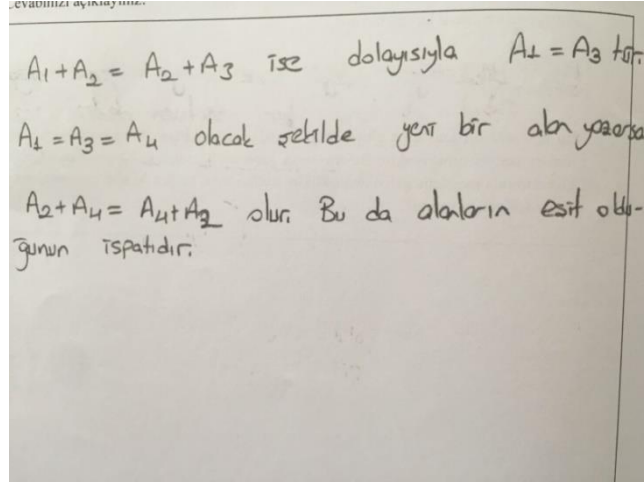 Cevabınızı açıklayınız.
A₁+A₂ = A₂+A₃ ise dolayısıyla A₁ = A₃ tür.
A₁ = A₃ = A₄ olacak şekilde yeni bir alan yazarsa
A₂+A₄ = A₄+A₂ olur. Bu da alanların eşit oldu-
ğunun ispatıdır.